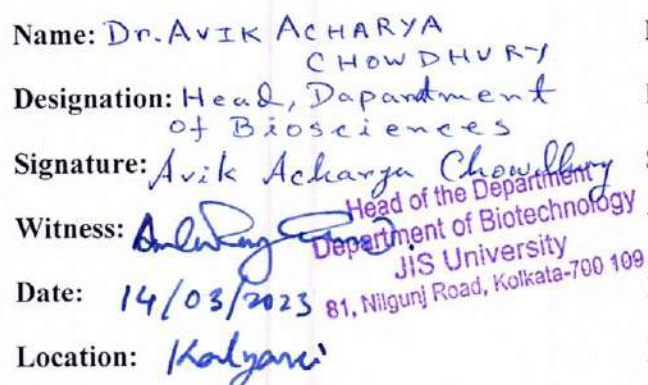 Name: Dr. AVIK ACHARYA
CHOWDHURY
Designation: Head, Dapardment
of Biosciences
Signature: Avik Acharya Chowdhury
Head of the Department
Witness:
Department of Biotechnology
JIS University
Date: 14/03/2023
81, Nilgunj Road, Kolkata-700 109
Location: Kalyani